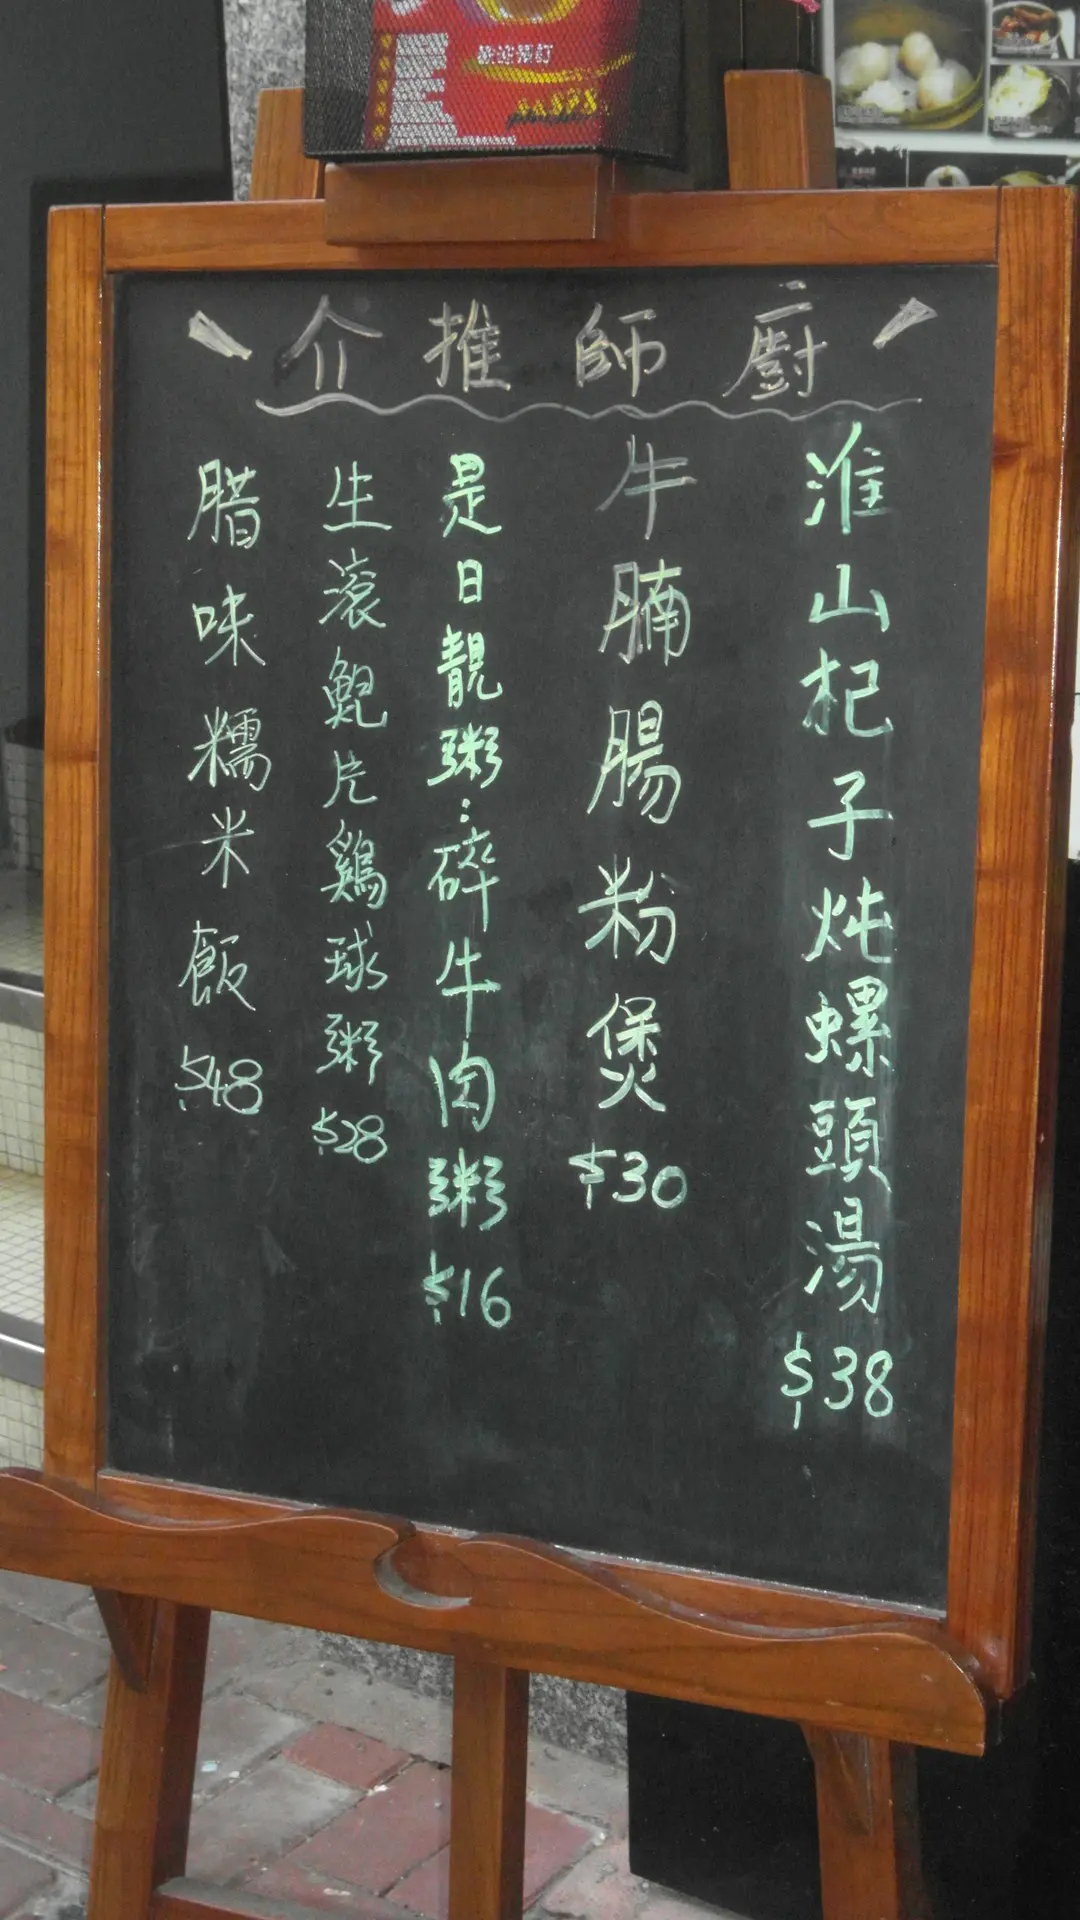 歡迎預訂
廚師推介
淮山杞子炖螺頭湯 $38
牛腩腸粉煲 $30
是日靚粥：碎牛肉粥 $16
生滾鯇片鷄球粥 $28
腊味糯米飯 $48